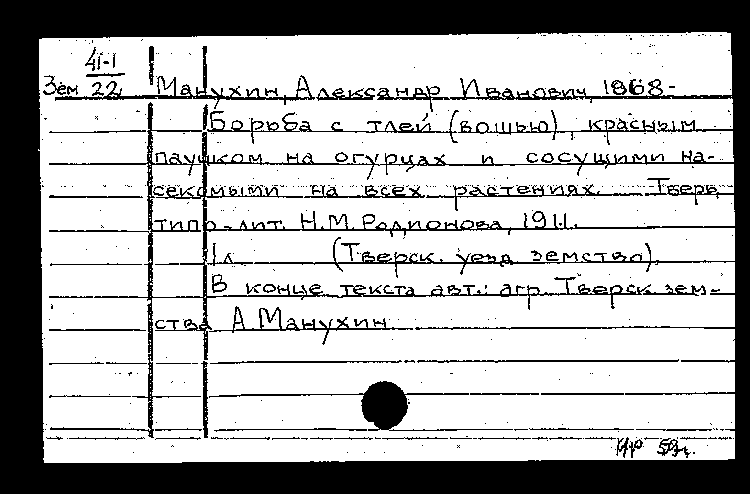 41-1
Зем 22
Манухин, Александр Иванович, 1868-
Борьба с тлей (вошью), красным
паучком на огурцах и сосущими на-
секомыми на всех растениях. Тверь,
типо-лит. Н.М. Родионова, 1911.
1л. (Тверск. уезд. земство).
В конце текста авт.: агр. Тверск. зем-
ства А. Манухин.